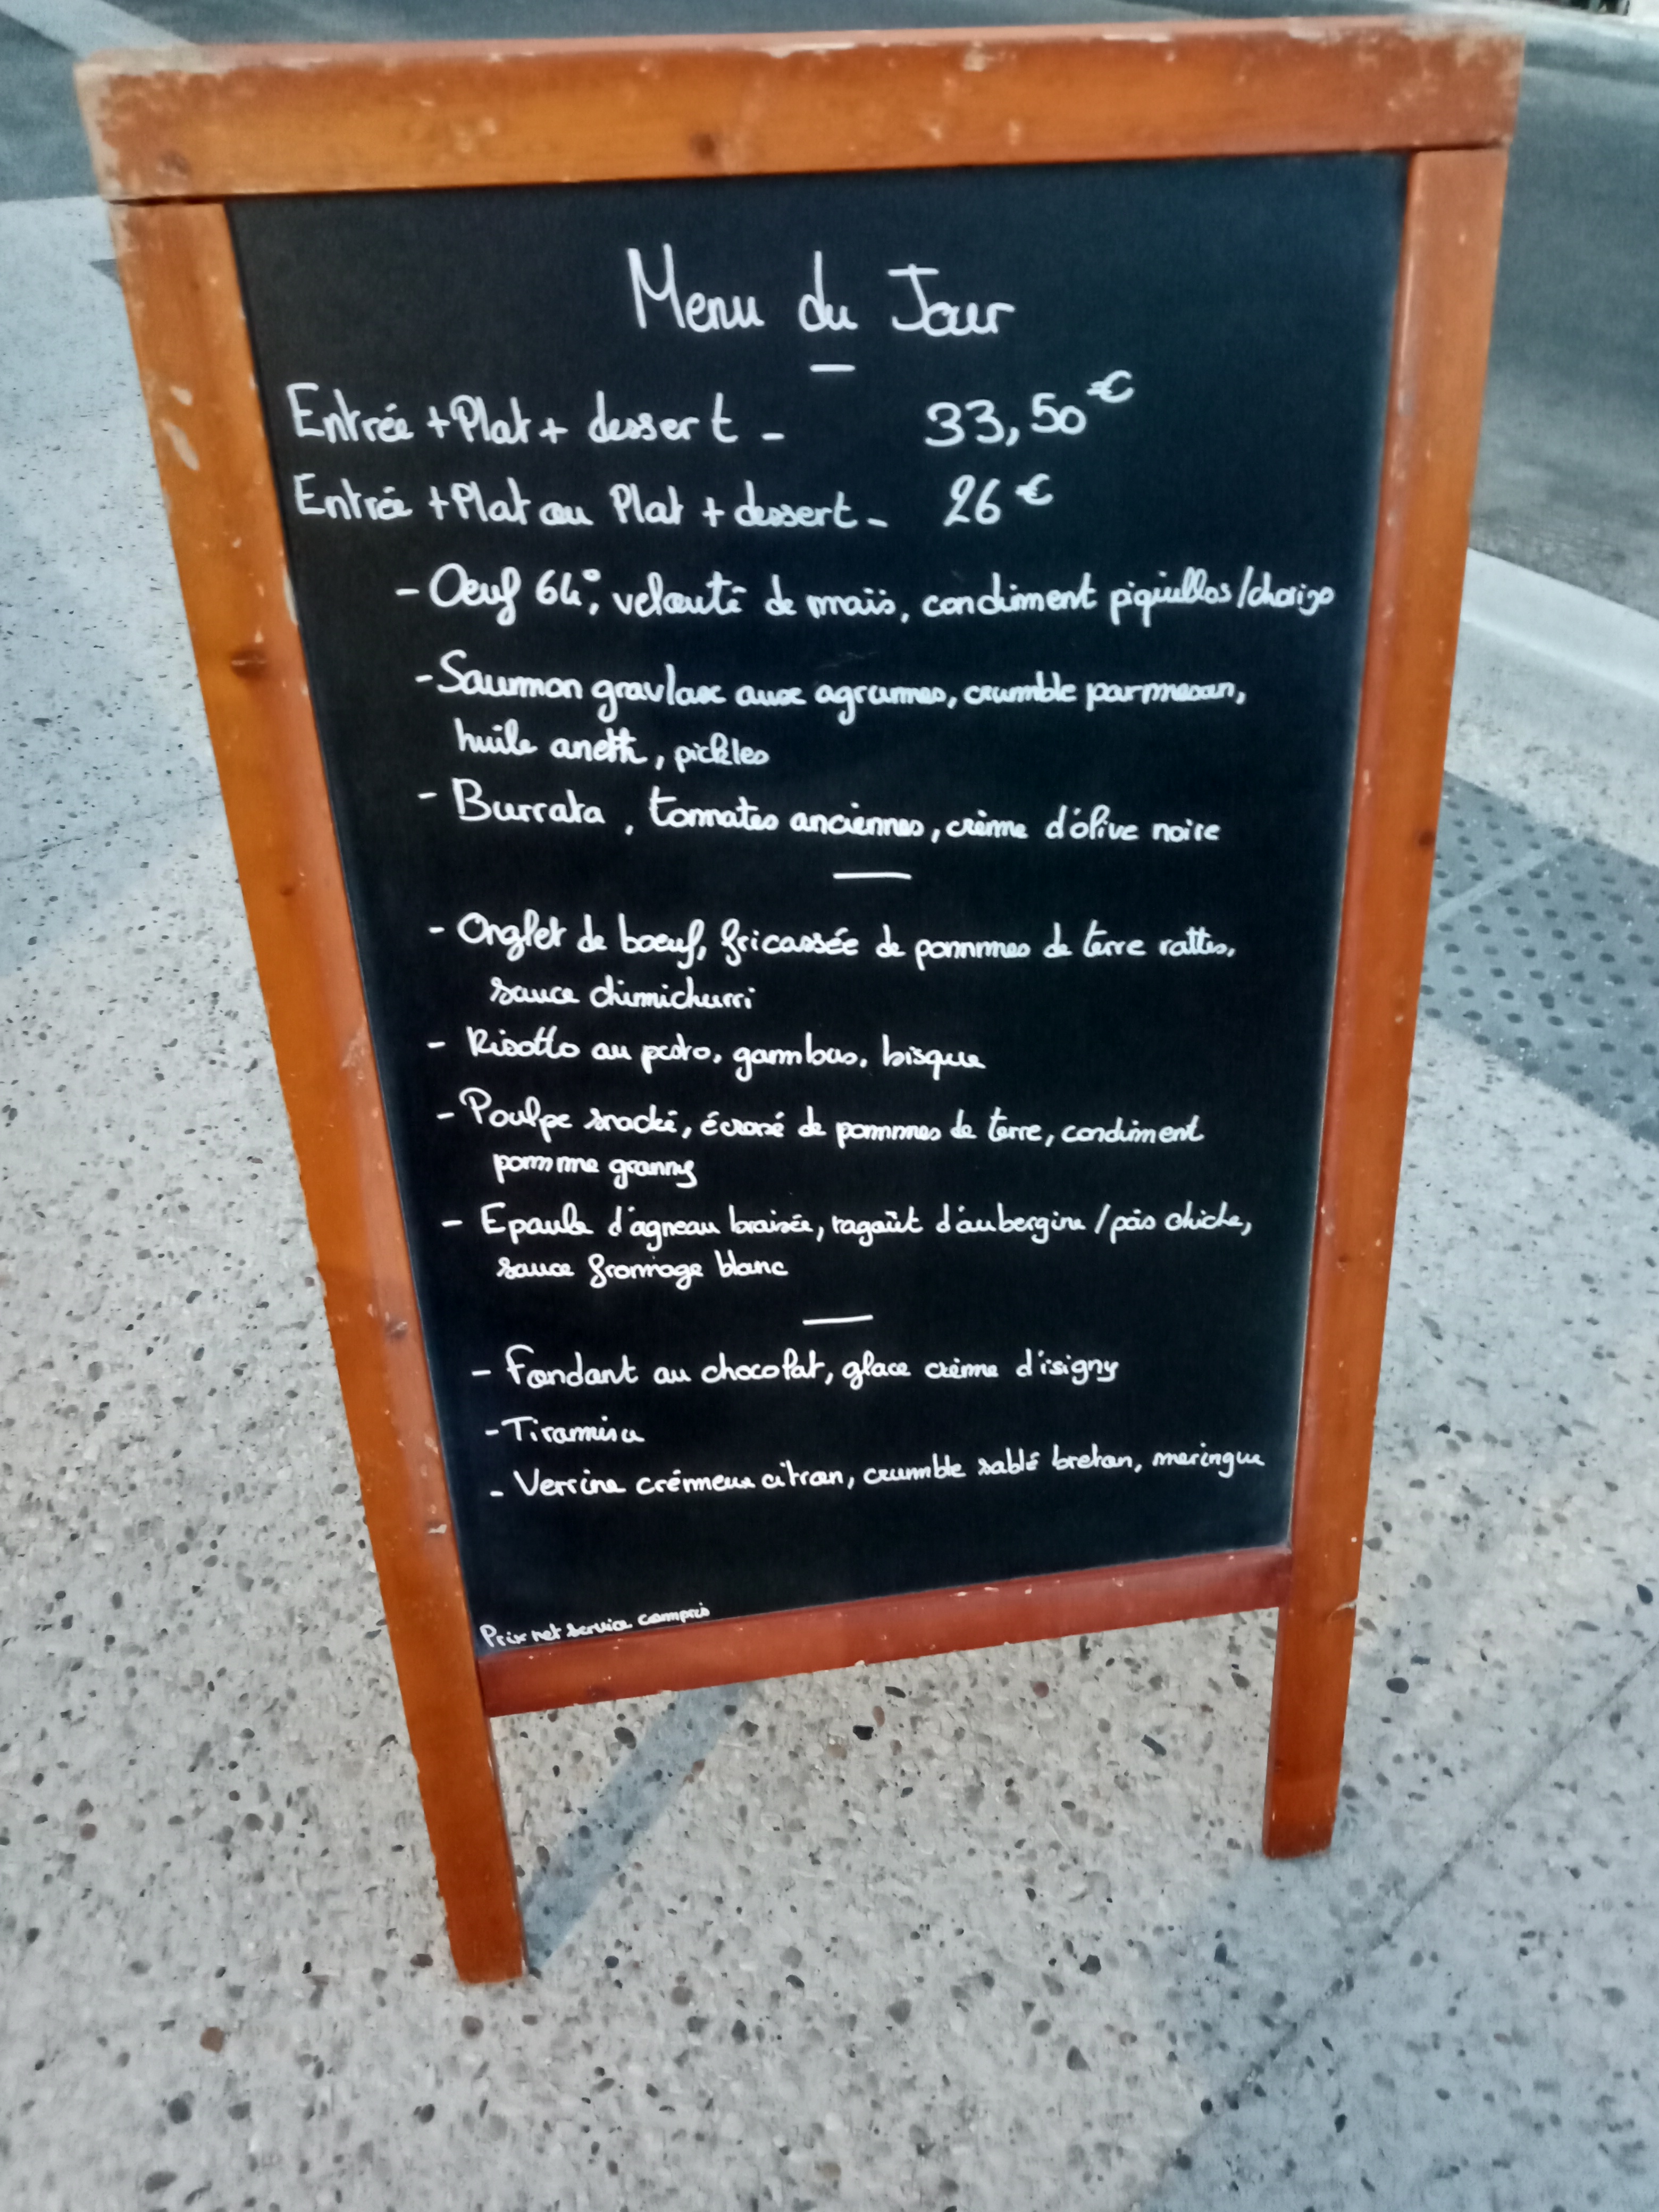 Menu du Jour
Entrée + Plat + dessert - 33,50 €
Entrée + Plat ou Plat + dessert - 26 €
- Oeuf 64°, velouté de maïs, condiment piquillos/chorizo
- Saumon gravlax aux agrumes, crumble parmesan,
huile aneth, pickles
- Burrata, tomates anciennes, crème d'olive noire
- Onglet de boeuf, fricassée de pommes de terre rattes,
sauce chimichurri
- Risotto au pesto, gambas, bisque
- Poulpe snacké, écrasé de pommes de terre, condiment
pomme granny
- Epaule d'agneau braisée, ragoût d'aubergine / pois chiche,
sauce fromage blanc
- Fondant au chocolat, glace crème d'isigny
- Tiramisu
- Verrine crémeux citron, crumble sablé breton, meringue
Prix net service compris